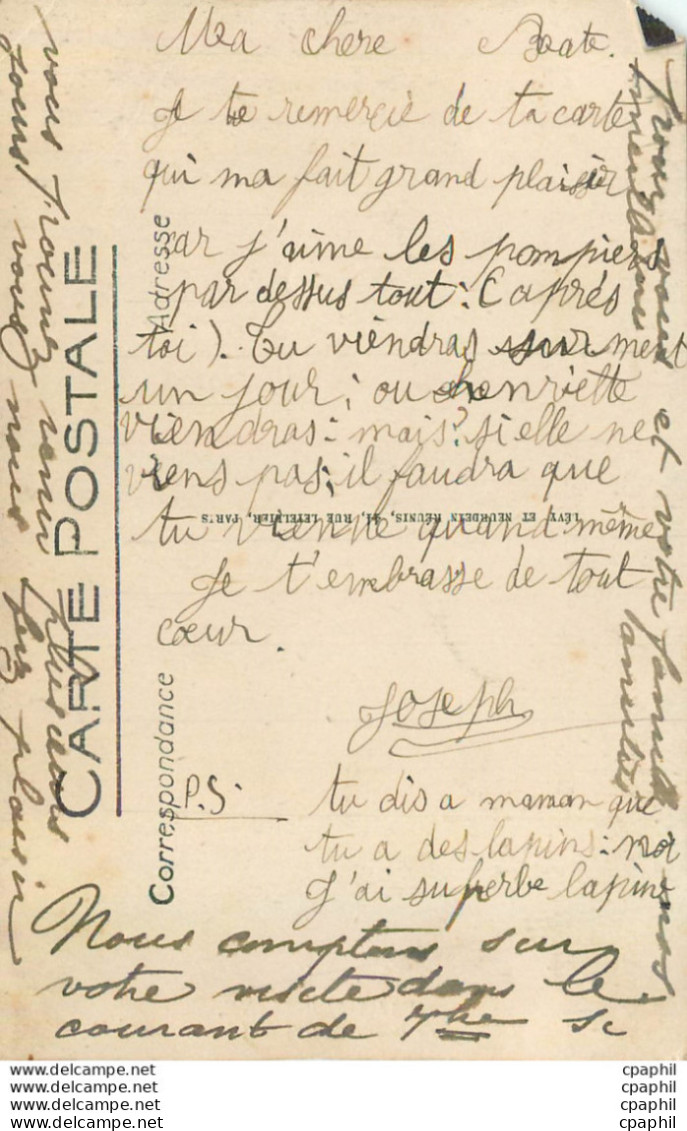 Ma chere Beate.
Je te remercie de ta carte
qui ma fait grand plaisir
car j'aime les pompiers
par dessus tout: (aprés
toi). Tu viendras surment
un jour; ou henriette
viendras: mais? si elle ne
viens pas; il faudra que
tu vienne quand même
Je t'embrasse de tout
cœur.
Joseph
P.S. tu dis a maman que
tu a des lapins: moi
j'ai superbe lapins
Nous comptons sur
votre visite dans le
courant de 7bre Si
vous pouvez venir plusieurs
jours vous nous fer plaisir
Pour vous et votre famille nos
amitiés
CARTE POSTALE
Correspondance
Adresse
LÉVY ET NEURDEIN RÉUNIS, 44, RUE LETELLIER, PARIS
www.delcampe.net
www.delcampe.net
www.delcampe.net
www.delcampe.net
cpaphil
cpaphil
cpaphil
cpaphil